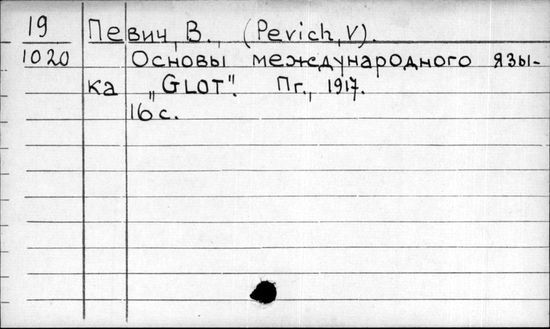 19 Певич, В., (Pevich, V).
1020 Основы международного язы-
ка „GLOT". Пг., 1917.
16 с.